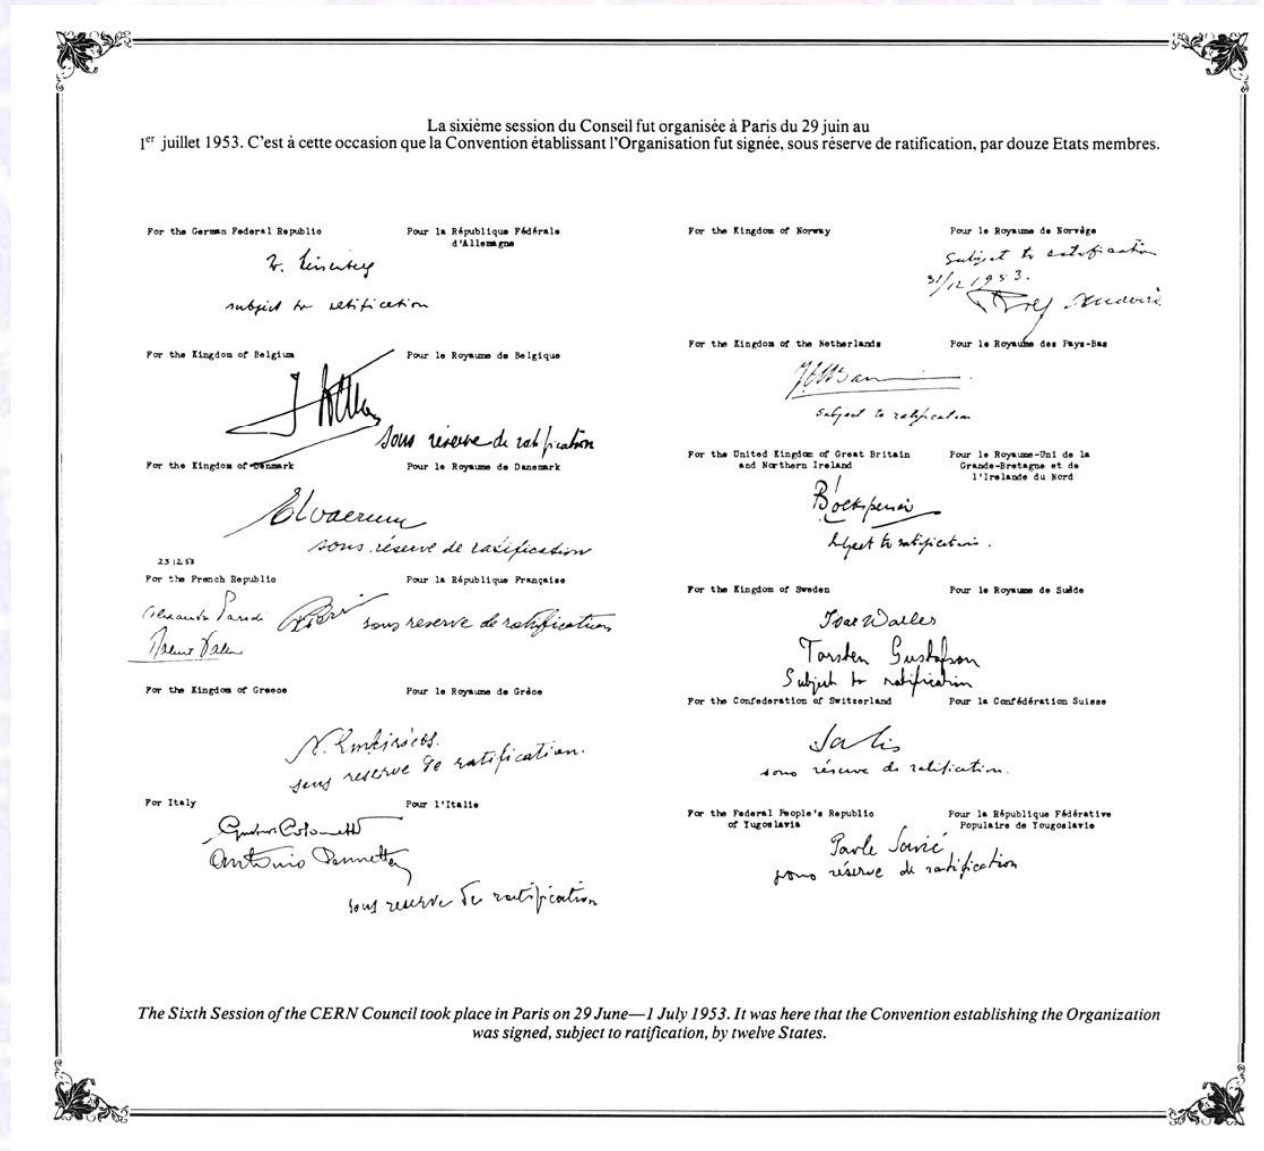 La sixième session du Conseil fut organisée à Paris du 29 juin au
1er juillet 1953. C'est à cette occasion que la Convention établissant l'Organisation fut signée, sous réserve de ratification, par douze Etats membres.
For the German Federal Republic
Pour la République Fédérale
d'Allemagne
W. Heisenberg
subject to ratification
For the Kingdom of Belgium
Pour le Royaume de Belgique
sous réserve de ratification
For the Kingdom of Denmark
Pour le Royaume de Danemark
sous réserve de ratification
23 12 53
For the French Republic
Pour la République Française
Alexandre Parodi
sous reserve de ratification
For the Kingdom of Greece
Pour le Royaume de Grèce
N. Embiricos.
sous reserve de ratification.
For Italy
Pour l'Italie
Gustavo Colonnetti
Antonio Pennetta
sous reserve de ratification
For the Kingdom of Norway
Pour le Royaume de Norvège
Subject to ratification
31/12 1953.
For the Kingdom of the Netherlands
Pour le Royaume des Pays-Bas
subject to ratification
For the United Kingdom of Great Britain
and Northern Ireland
Pour le Royaume-Uni de la
Grande-Bretagne et de
l'Irelande du Nord
Subject to ratification.
For the Kingdom of Sweden
Pour le Royaume de Suède
Ivar Waller
Torsten Gustafson
Subject to ratification
For the Confederation of Switzerland
Pour la Confédération Suisse
Salis
sous réserve de ratification.
For the Federal People's Republic
of Yugoslavia
Pour la République Fédérative
Populaire de Yougoslavie
Pavle Savić
sous réserve de ratification
The Sixth Session of the CERN Council took place in Paris on 29 June—1 July 1953. It was here that the Convention establishing the Organization
was signed, subject to ratification, by twelve States.